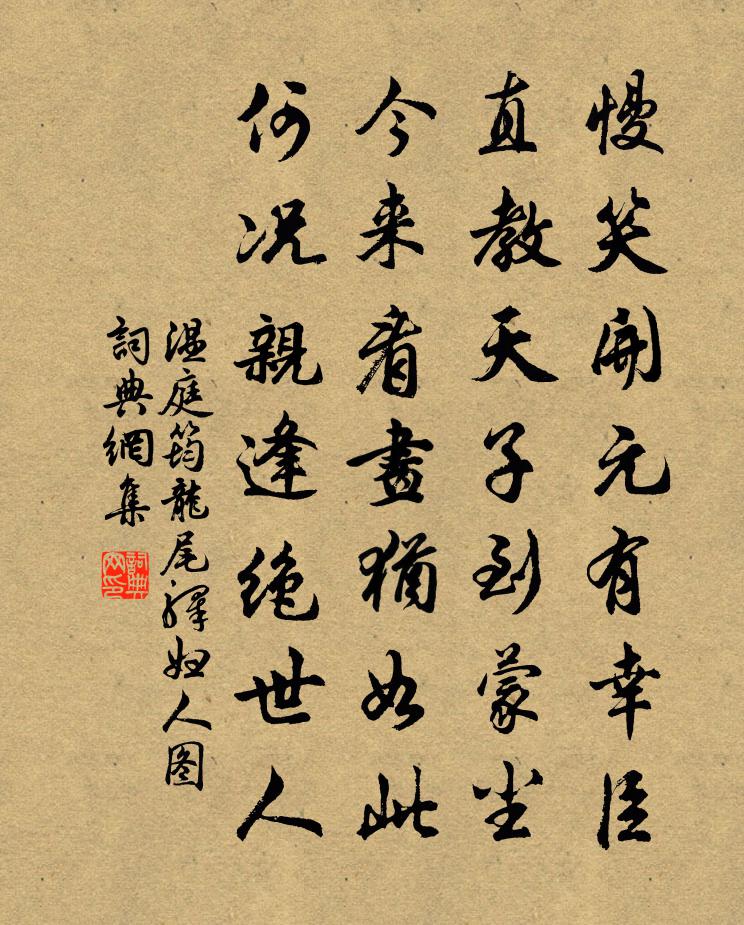 慢笑開元有幸臣
直教天子到蒙尘
今来看畫猶如此
何况親逢绝世人
温庭筠龍尾驛婦人图
詞典網集
詞典
网印